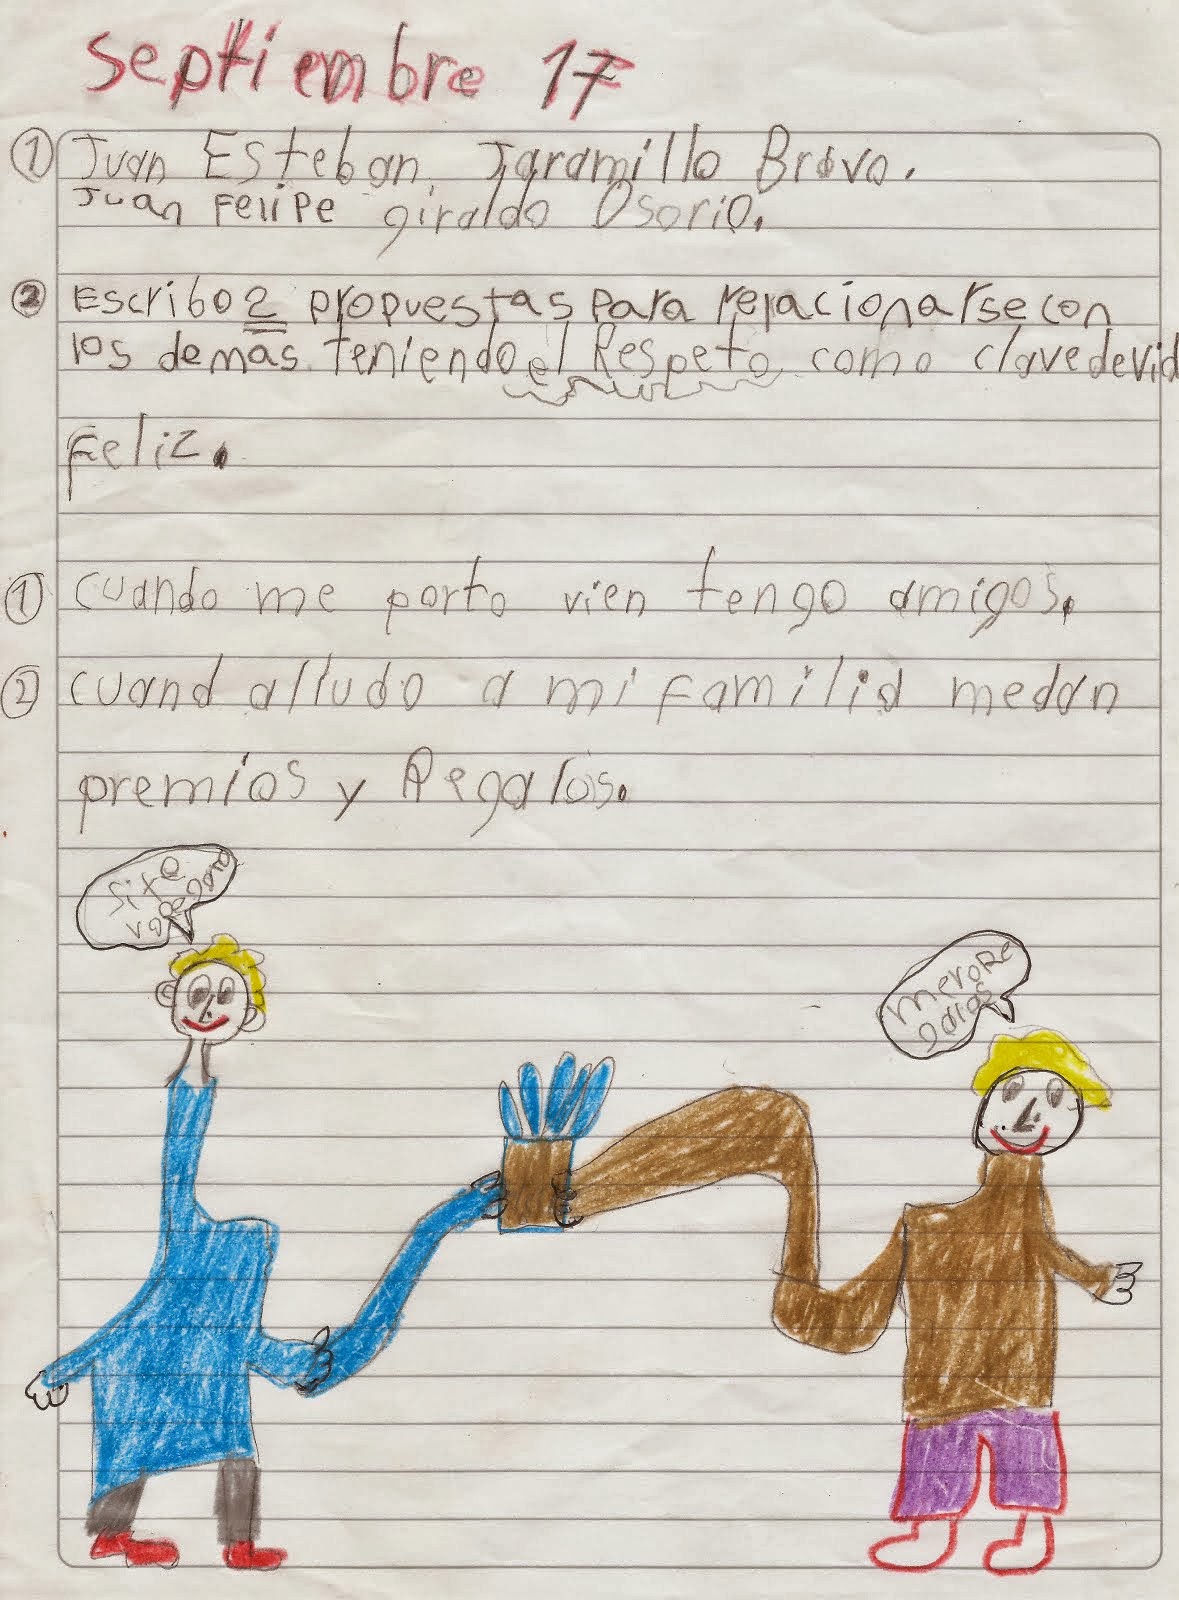 septiembre 17
① Juan Esteban Jaramillo Bravo.
Juan Felipe giraldo Osorio.
② Escribo 2 propuestas para relacionarse con
los demás teniendo el Respeto como clave de vid
Feliz.
① cuando me porto vien tengo amigos.
② cuand alludo a mi familia medan
premios y Regalos.
Site
Merore
galas